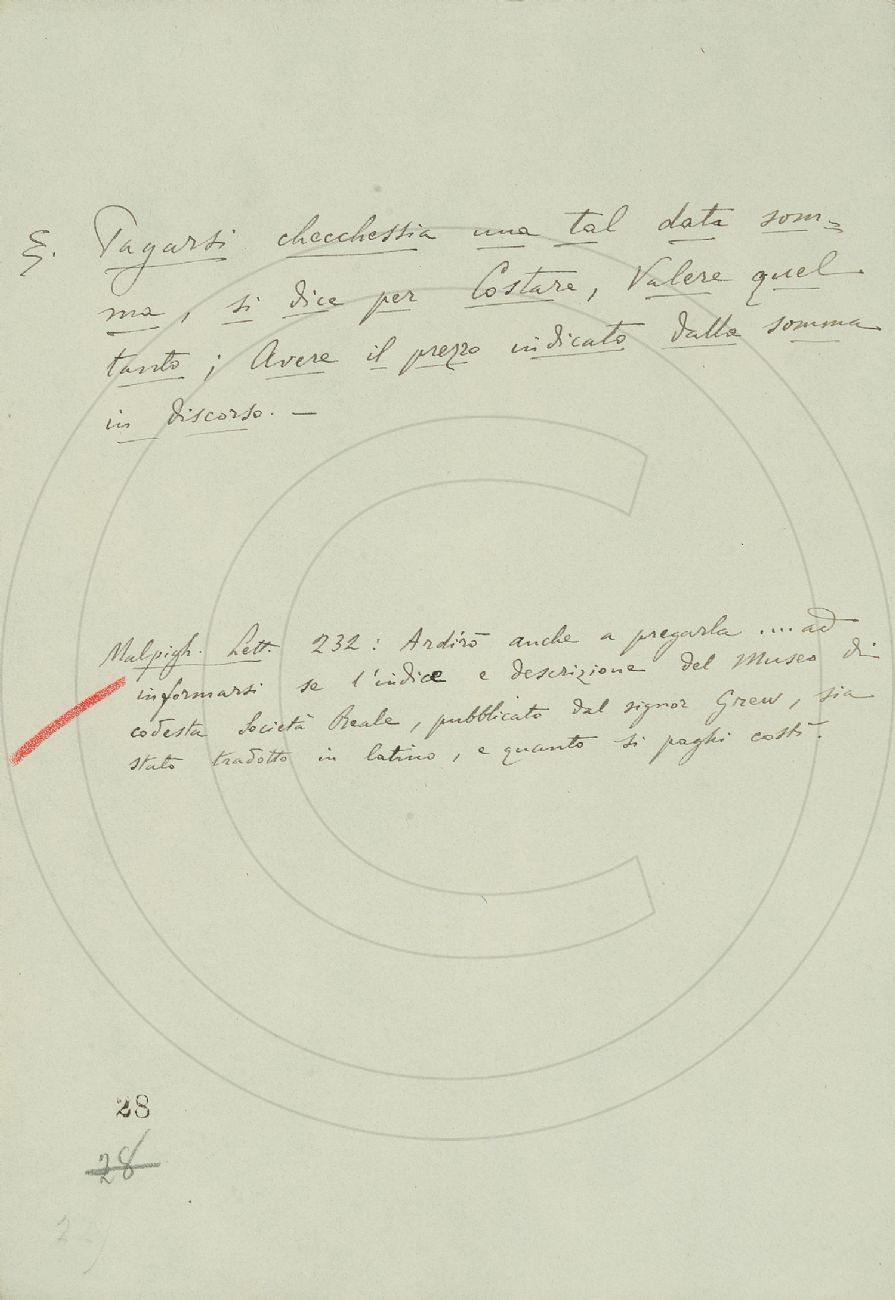 §. Pagarsi checchessia una tal data som=
ma, si dice per Costare, Valere quel
tanto; Avere il prezzo indicato dalla somma
in discorso. —
Malpigh. Lett. 232: Ardirò anche a pregarla .... ad
informarsi se l'indice e descrizione del Museo di
codesta Società Reale, pubblicato dal signor Grew, sia
stato tradotto in latino, e quanto si paghi costì.
28
28